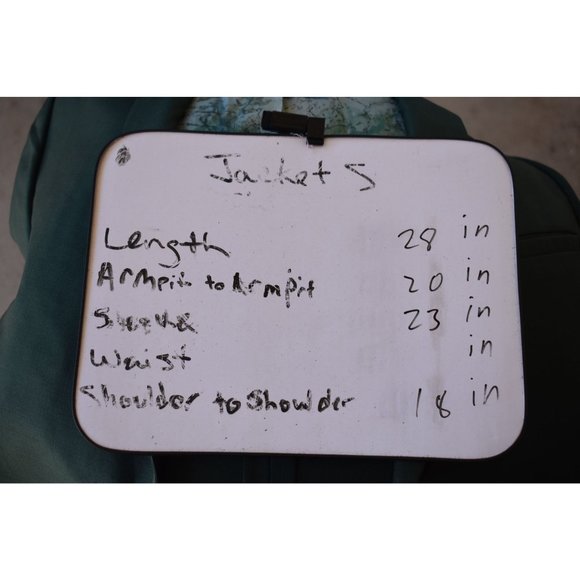 Jackets
Length 28 in
Armpit to Armpit 20 in
Sleeve 23 in
Waist in
Shoulder to Shoulder 18 in